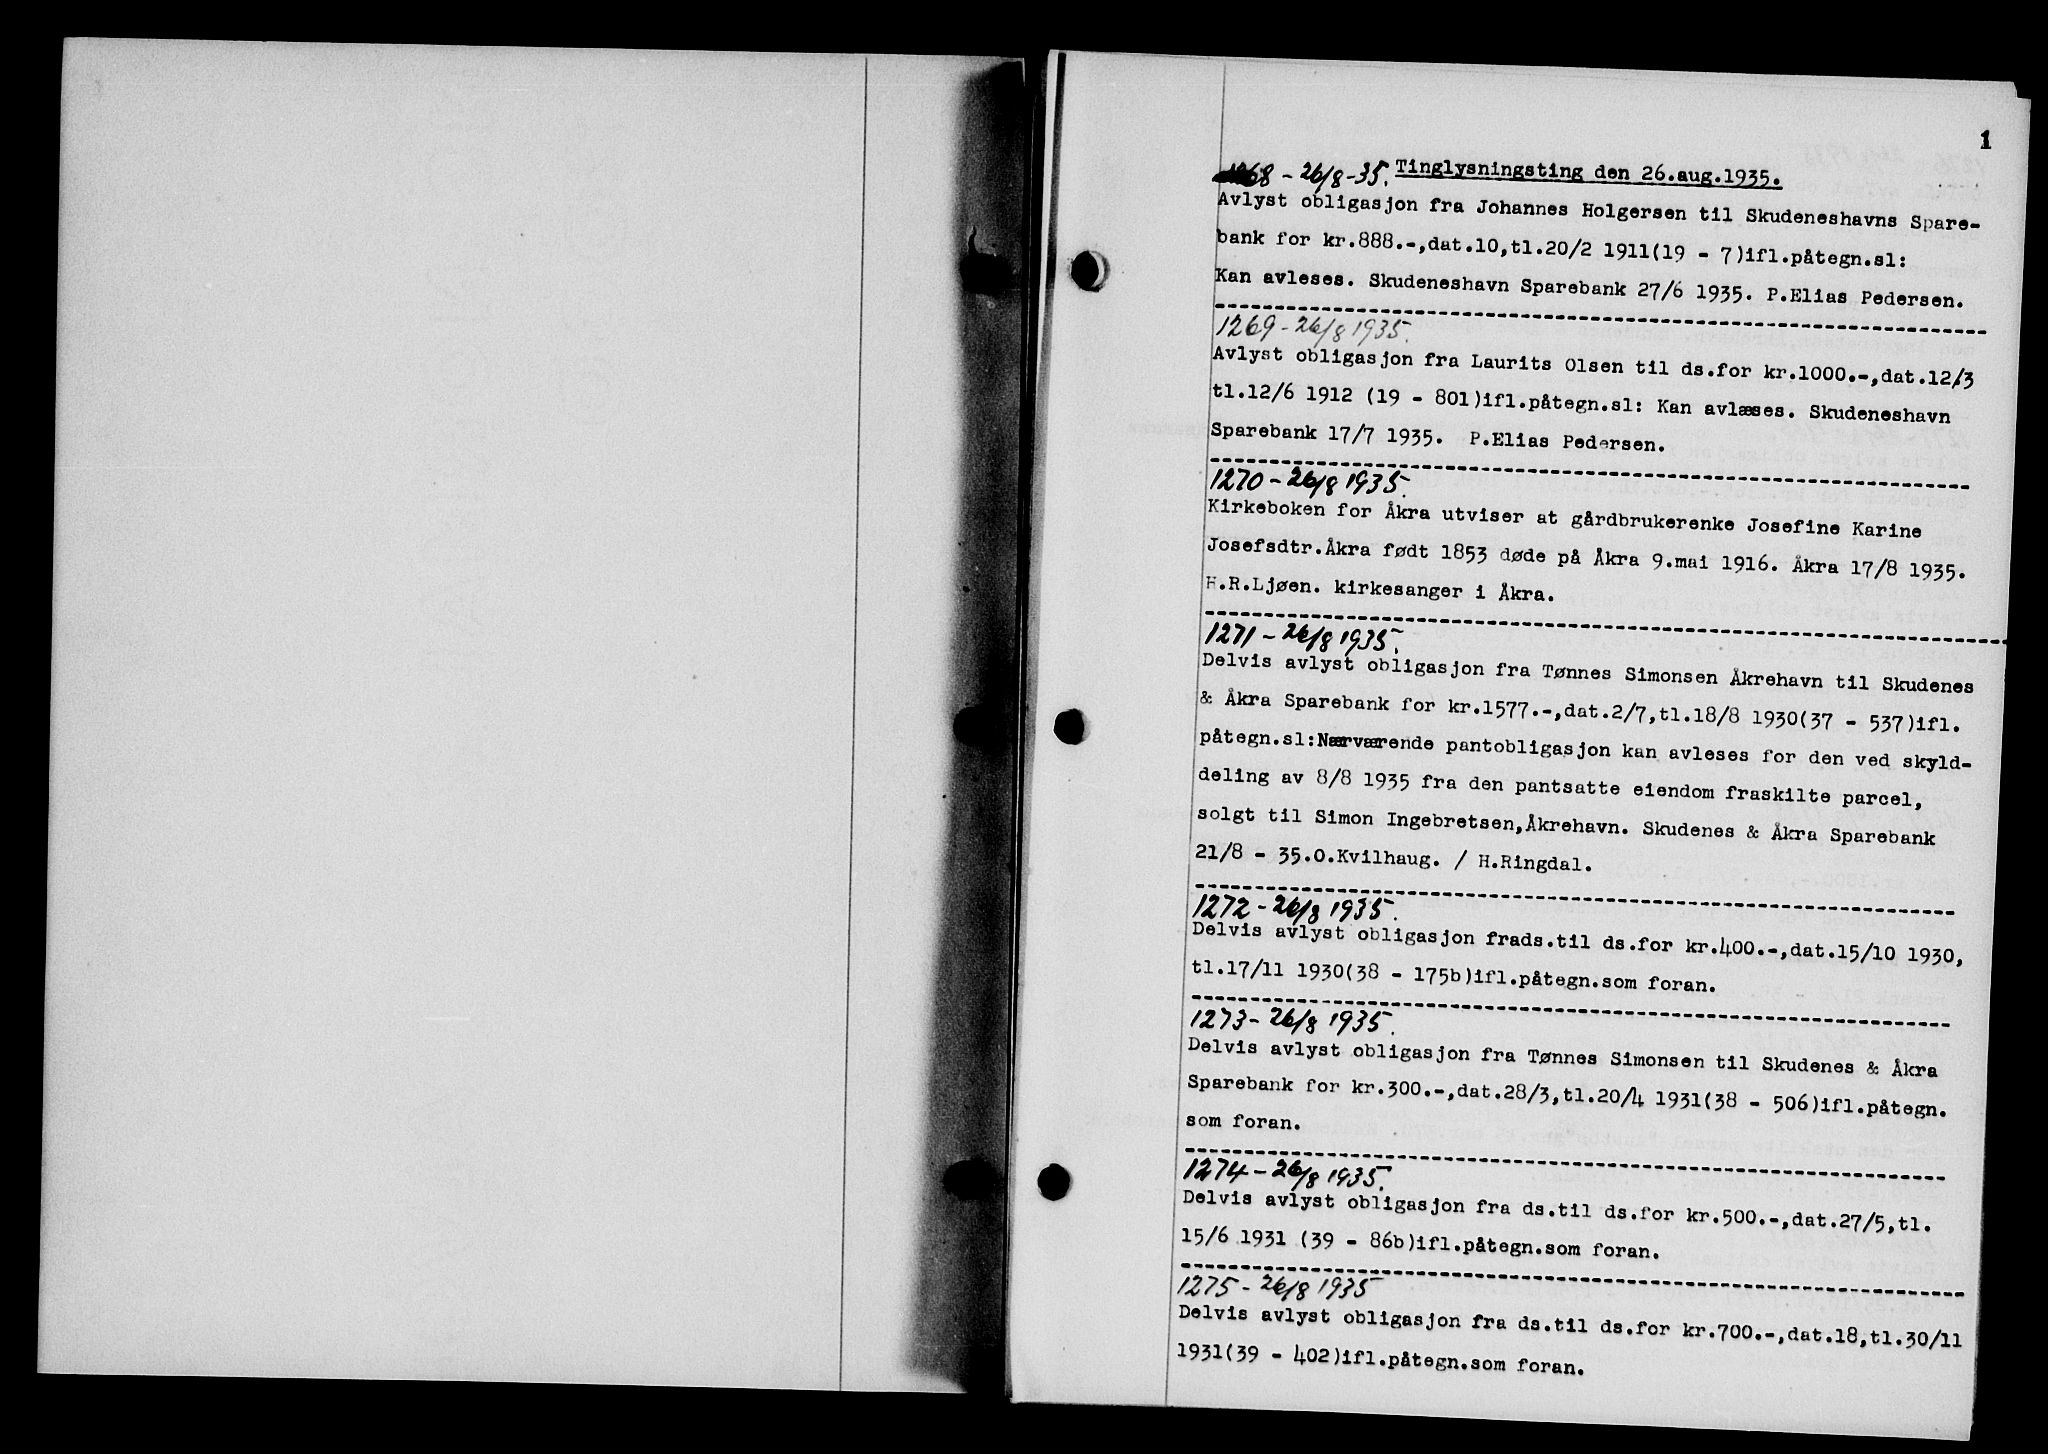 1
1268 - 26/8-35. Tinglysningsting den 26.aug.1935.
Avlyst obligasjon fra Johannes Holgersen til Skudeneshavns Spare-
bank for kr.888.-,dat.10,tl.20/2 1911(19 - 7)ifl.påtegn.sl:
Kan avleses. Skudeneshavn Sparebank 27/6 1935. P.Elias Pedersen.
1269 - 26/8 1935.
Avlyst obligasjon fra Laurits Olsen til ds.for kr.1000.-,dat.12/3
tl.12/6 1912 (19 - 801)ifl.påtegn.sl: Kan avlæses. Skudeneshavn
Sparebank 17/7 1935. P.Elias Pedersen.
1270 - 26/8 1935.
Kirkeboken for Åkra utviser at gårdbrukerenke Josefine Karine
Josefsdtr.Åkra født 1853 døde på Åkra 9.mai 1916. Åkra 17/8 1935.
H.R.Ljøen. kirkesanger i Åkra.
1271 - 26/8 1935.
Delvis avlyst obligasjon fra Tønnes Simonsen Åkrehavn til Skudenes
& Åkra Sparebank for kr.1577.-,dat.2/7,tl.18/8 1930(37 - 537)ifl.
påtegn.sl:Nærværende pantobligasjon kan avleses for den ved skyld-
deling av 8/8 1935 fra den pantsatte eiendom fraskilte parcel,
solgt til Simon Ingebretsen,Åkrehavn. Skudenes & Åkra Sparebank
21/8 - 35.O.Kvilhaug. / H.Ringdal.
1272 - 26/8 1935.
Delvis avlyst obligasjon frads.til ds.for kr.400.-,dat.15/10 1930,
tl.17/11 1930(38 - 175b)ifl.påtegn.som foran.
1273 - 26/8 1935.
Delvis avlyst obligasjon fra Tønnes Simonsen til Skudenes & Åkra
Sparebank for kr.300.-,dat.28/3,tl.20/4 1931(38 - 506)ifl.påtegn.
som foran.
1274 - 26/8 1935.
Delvis avlyst obligasjon fra ds.til ds.for kr.500.-,dat.27/5,tl.
15/6 1931 (39 - 86b)ifl.påtegn.som foran.
1275 - 26/8 1935
Delvis avlyst obligasjon fra ds.til ds.for kr.700.-,dat.18,tl.30/11
1931(39 - 402)ifl.påtegn.som foran.